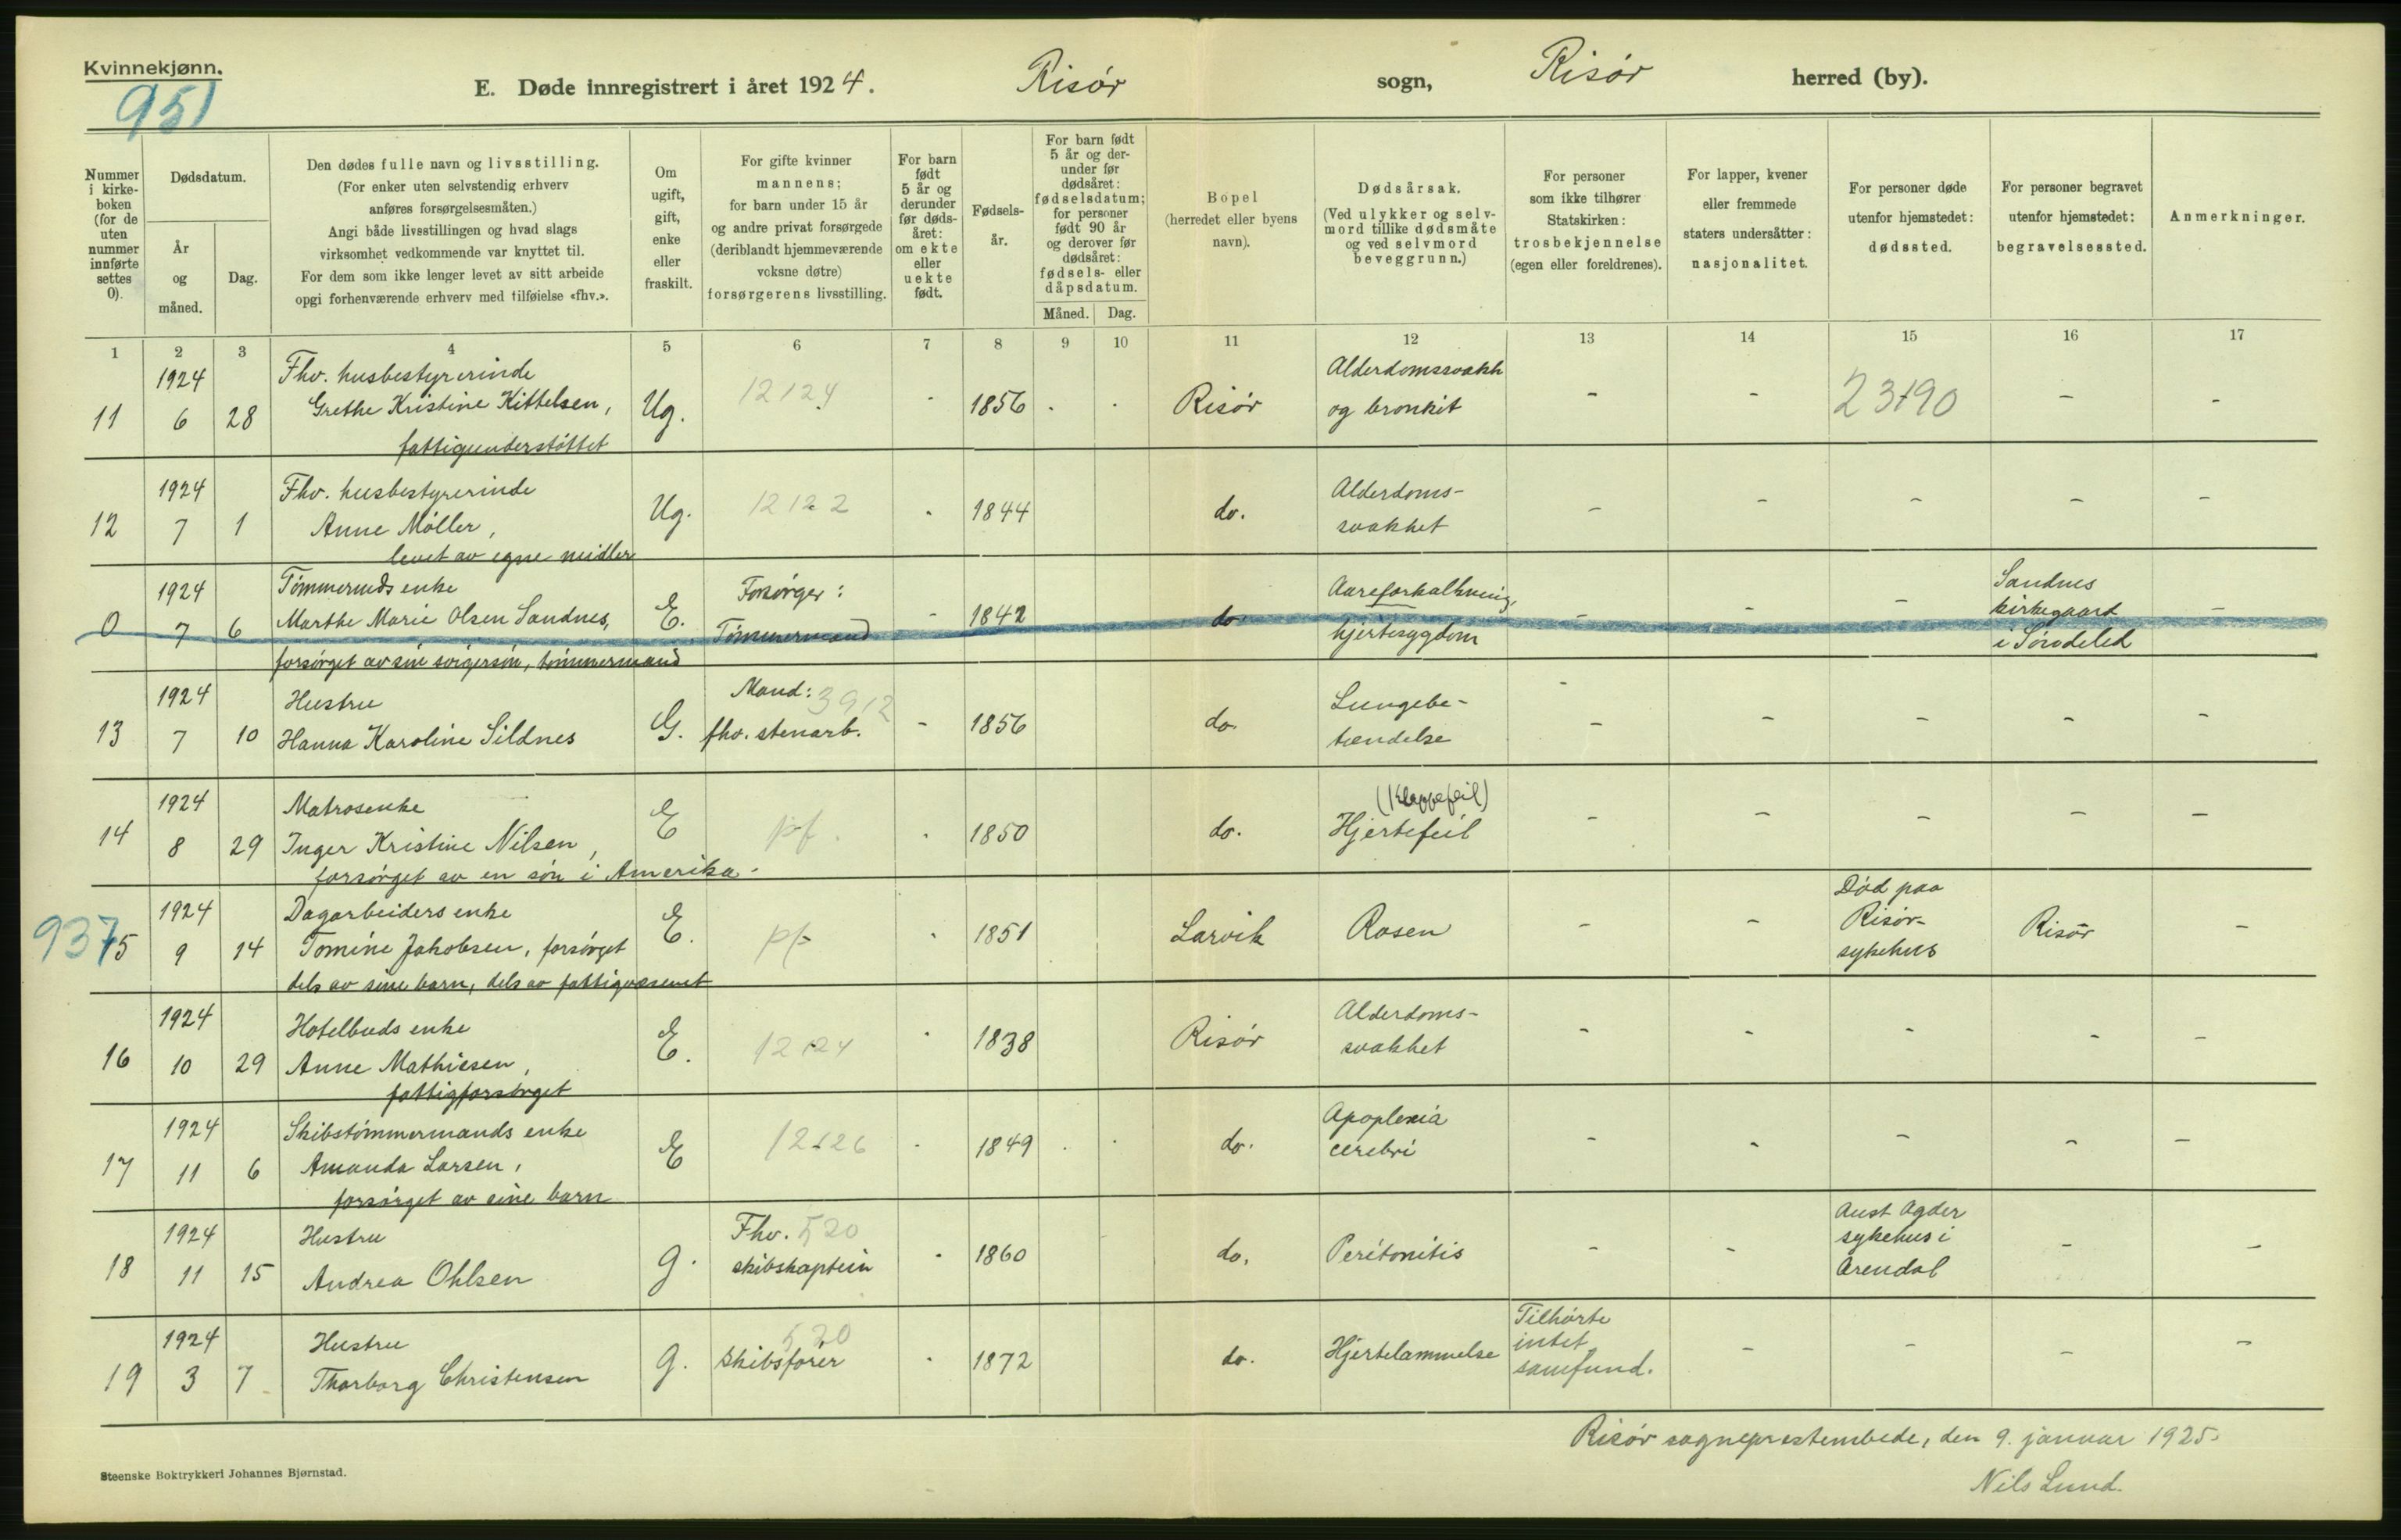 Kvinnekjønn.
951
E. Døde innregistrert i året 1924.
Risør sogn, Risør herred (by).
Nummer i kirke-boken (for de uten nummer innførte settes 0).
Dødsdatum.
År og måned.
Dag.
Den dødes fulle navn og livsstilling.
(For enker uten selvstendig erhverv
anføres forsørgelsesmåten.)
Angi både livsstillingen og hvad slags
virksomhet vedkommende var knyttet til.
For dem som ikke lenger levet av sitt arbeide
opgi forhenværende erhverv med tilføielse «fhv.».
Om
ugift,
gift,
enke
eller
fraskilt.
For gifte kvinner
mannens;
for barn under 15 år
og andre privat forsørgede
(deriblandt hjemmeværende
voksne døtre)
forsørgerens livsstilling.
For barn
født
5 år og
derunder
før døds-
året:
om ekte
eller
uekte
født.
Fødsels-
år.
For barn født
5 år og der-
under før
dødsåret:
fødselsdatum;
for personer
født 90 år
og derover før
dødsåret:
fødsels- eller
dåpsdatum.
Måned. Dag.
Bopel
(herredet eller byens
navn).
Dødsårsak.
(Ved ulykker og selv-
mord tillike dødsmåte
og ved selvmord
beveggrunn.)
For personer
som ikke tilhører
Statskirken:
trosbekjennelse
(egen eller foreldrenes).
For lapper, kvener
eller fremmede
staters undersåtter:
nasjonalitet.
For personer døde
utenfor hjemstedet:
dødssted.
For personer begravet
utenfor hjemstedet:
begravelsessted.
Anmerkninger.
1 2 3 4 5 6 7 8 9 10 11 12 13 14 15 16 17
11 1924 6 28 Fhv. husbestyrerinde
Grethe Kristine Kittelsen,
fattigunderstøttet
Ug. 12124 - 1856 Risør Alderdomssvakh
og bronkit - - 23190 - -
12 1924 7 1 Fhv. husbestyrerinde
Anne Møller,
levet av egne midler
Ug. 12122 - 1844 do. Alderdoms-
svakhet - - - - -
0 1924 7 6 Tømmermds enke
Marthe Marie Olsen Sandnes,
forsørget av sin svigersøn, tømmermand
E. Forsørger:
Tømmermand - 1842 do Aareforkalkning,
hjertesygdom - - - Sandnes
kirkegaard
i Søndeled -
13 1924 7 10 Hustru
Hanna Karoline Sildnes
G. Mand: 3912
fhv. stenarb. - 1856 do. Lungebe-
tændelse - - - - -
14 1924 8 29 Matrosenke
Inger Kristine Nilsen,
forsørget av en søn i Amerika.
E pf. - 1850 do. (Klappefeil)
Hjertefeil - - - - -
937 15 1924 9 14 Dagarbeiders enke
Tomine Jakobsen, forsørget
dels av sine barn, dels av fattigvæsenet
E. pf - 1851 Larvik Rosen - - Død paa
Risør-
sykehus Risør -
16 1924 10 29 Hotelbuds enke
Anne Mathiesen,
fattigforsørget
E. 12124 - 1838 Risør Alderdoms-
svakhet - - - - -
17 1924 11 6 Skibstømmermands enke
Amanda Larsen,
forsørget av sine barn
E 12126 - 1849 do. Apoplexia
cerebri - - - - -
18 1924 11 15 Hustru
Andrea Ohlsen
g. Fhv. 520
skibskaptein - 1860 do. Peritonitis - - Aust Agder
sykehus i
Arendal - -
19 1924 3 7 Hustru
Thorborg Christensen
g. 520
skibsfører - 1872 do. Hjertelammelse Tilhørte
intet
samfund. - - - -
Risør sogneprestembede, den 9. januar 1925.
Nils Lund.
Steenske Boktrykkeri Johannes Bjørnstad.